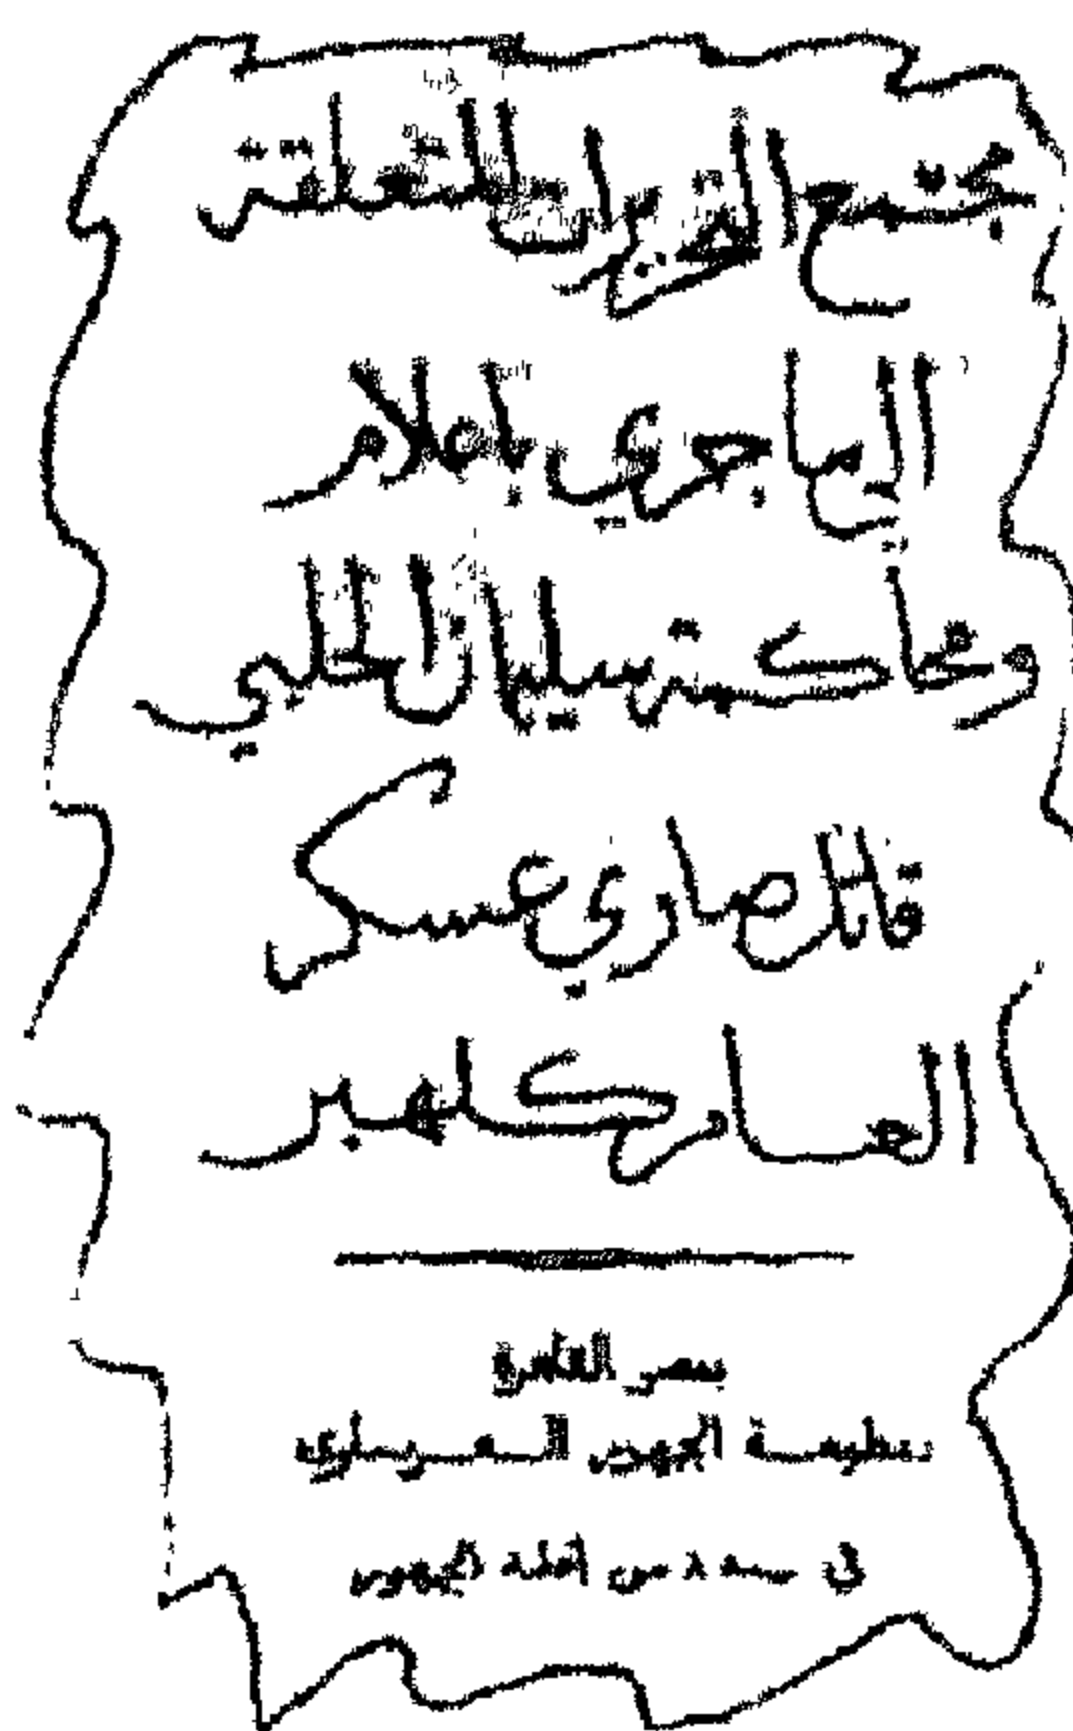 مجتمع التحريرات المتعلقة
الى ما جرى باعلام
ومحاكمة سليمان الحلبي
قاتل صاري عسكر
العام كلهبر
بمصر القاهرة
بمطبعة الجمهور الفرنساوي
في سنة ٨ من اقامة الجمهور